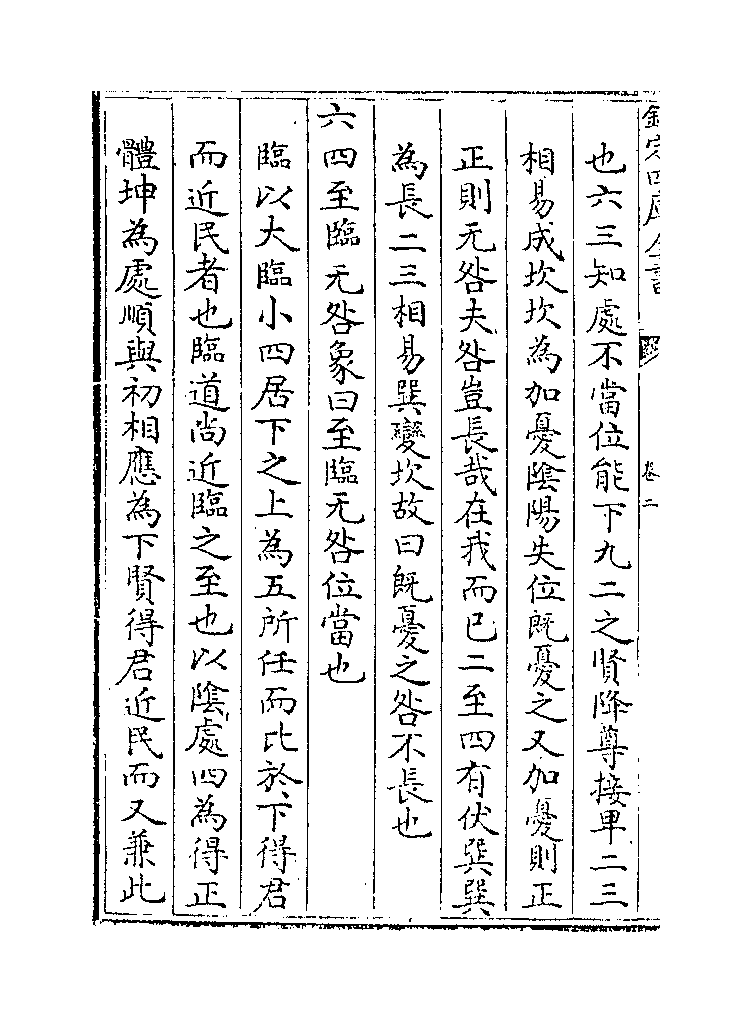 欽定四庫全書
卷二
也六三知處不當位能下九二之賢降尊接卑二三
相易成坎坎為加憂陰陽失位既憂之又加憂則正
正則无咎夫咎豈長哉在我而已二至四有伏巽巽
為長二三相易巽變坎故曰既憂之咎不長也
六四至臨无咎象曰至臨无咎位當也
臨以大臨小四居下之上為五所任而比於下得君
而近民者也臨道尚近臨之至也以陰處四為得正
體坤為處順與初相應為下賢得君近民而又兼此